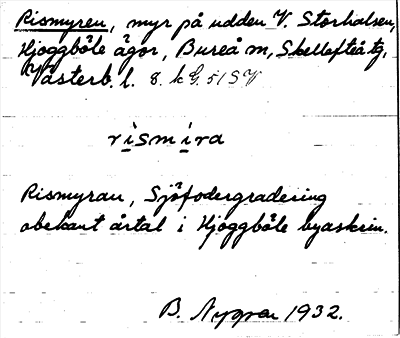 Rismyren, myr på udden V. Storholsen,
Hjoggböle ägor, Bureå sn, Skellefteå tg,
Västerb. l. 8. k G. 51 SV
rismira
Rismyran, Sjöfodergradering
obekant årtal i Hjoggböle byaskrin.
B. Nygren 1932.